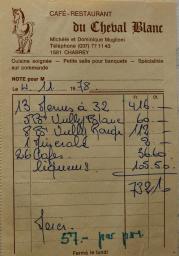 CAFÉ-RESTAURANT
du Cheval Blanc
Michèle et Dominique Muglioni
Téléphone (037) 77 11 43
1581 CHABREY
Cuisine soignée — Petite salle pour banquets — Spécialités
sur commande
NOTE pour M
Le 4. 11 1978
13 Menus à 32 416.—
Vully Blanc 60.—
Vully Rouge 112.—
1 Minérale 8.—
26 Cafés 36.60
liqueurs 105.50
732.10
Merci
57.— par pers.
Fermé le lundi